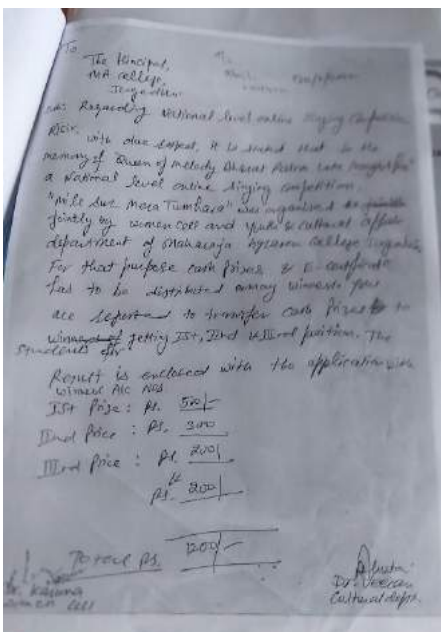 To,
The Principal,
MA College,
Sub: Regarding National level online singing competition
R/Sir,
with due respect, it is stated that in the
memory of Queen of melody Bharat Ratna Late
a National level online singing competition
"Mile Sur Mera Tumhara" was organised
jointly by women cell and youth & cultural affair
department of Maharaja Agrasen College
For that purpose cash prizes & E-certificate
has to be distributed among winners you
are requested to transfer cash prizes to
students for getting Ist, IInd & IIIrd position. The
Result is enclosed with the application with
winners A/c Nos
Ist Prize: Rs. 500/-
IInd Price: Rs. 300
IIIrd Price: Rs. 200/
" Rs. 200/
Total Rs. 1200/-
Dr. Karuna
Women Cell
Dr.
Cultural dept.